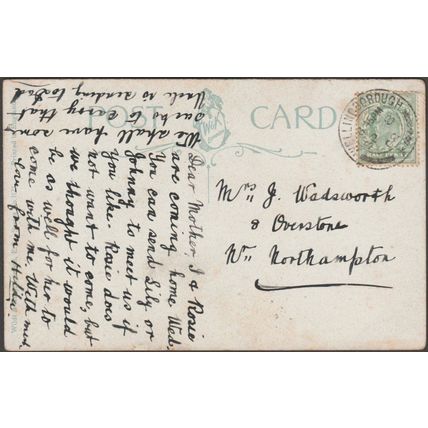 POST CARD
WELLINGBOROUGH
Dear Mother I & Rosie
are coming home Wed.
You can send Lily or
Johnny to meet us if
you like. Rosie does
not want to come, but
we thought it would
be as well for her to
come with me. With much
love from Hilda
We shall have some
sacks to carry that
Uncle is sending to Dad
Mrs J. Wadsworth
8 Overstone
Nr Northampton